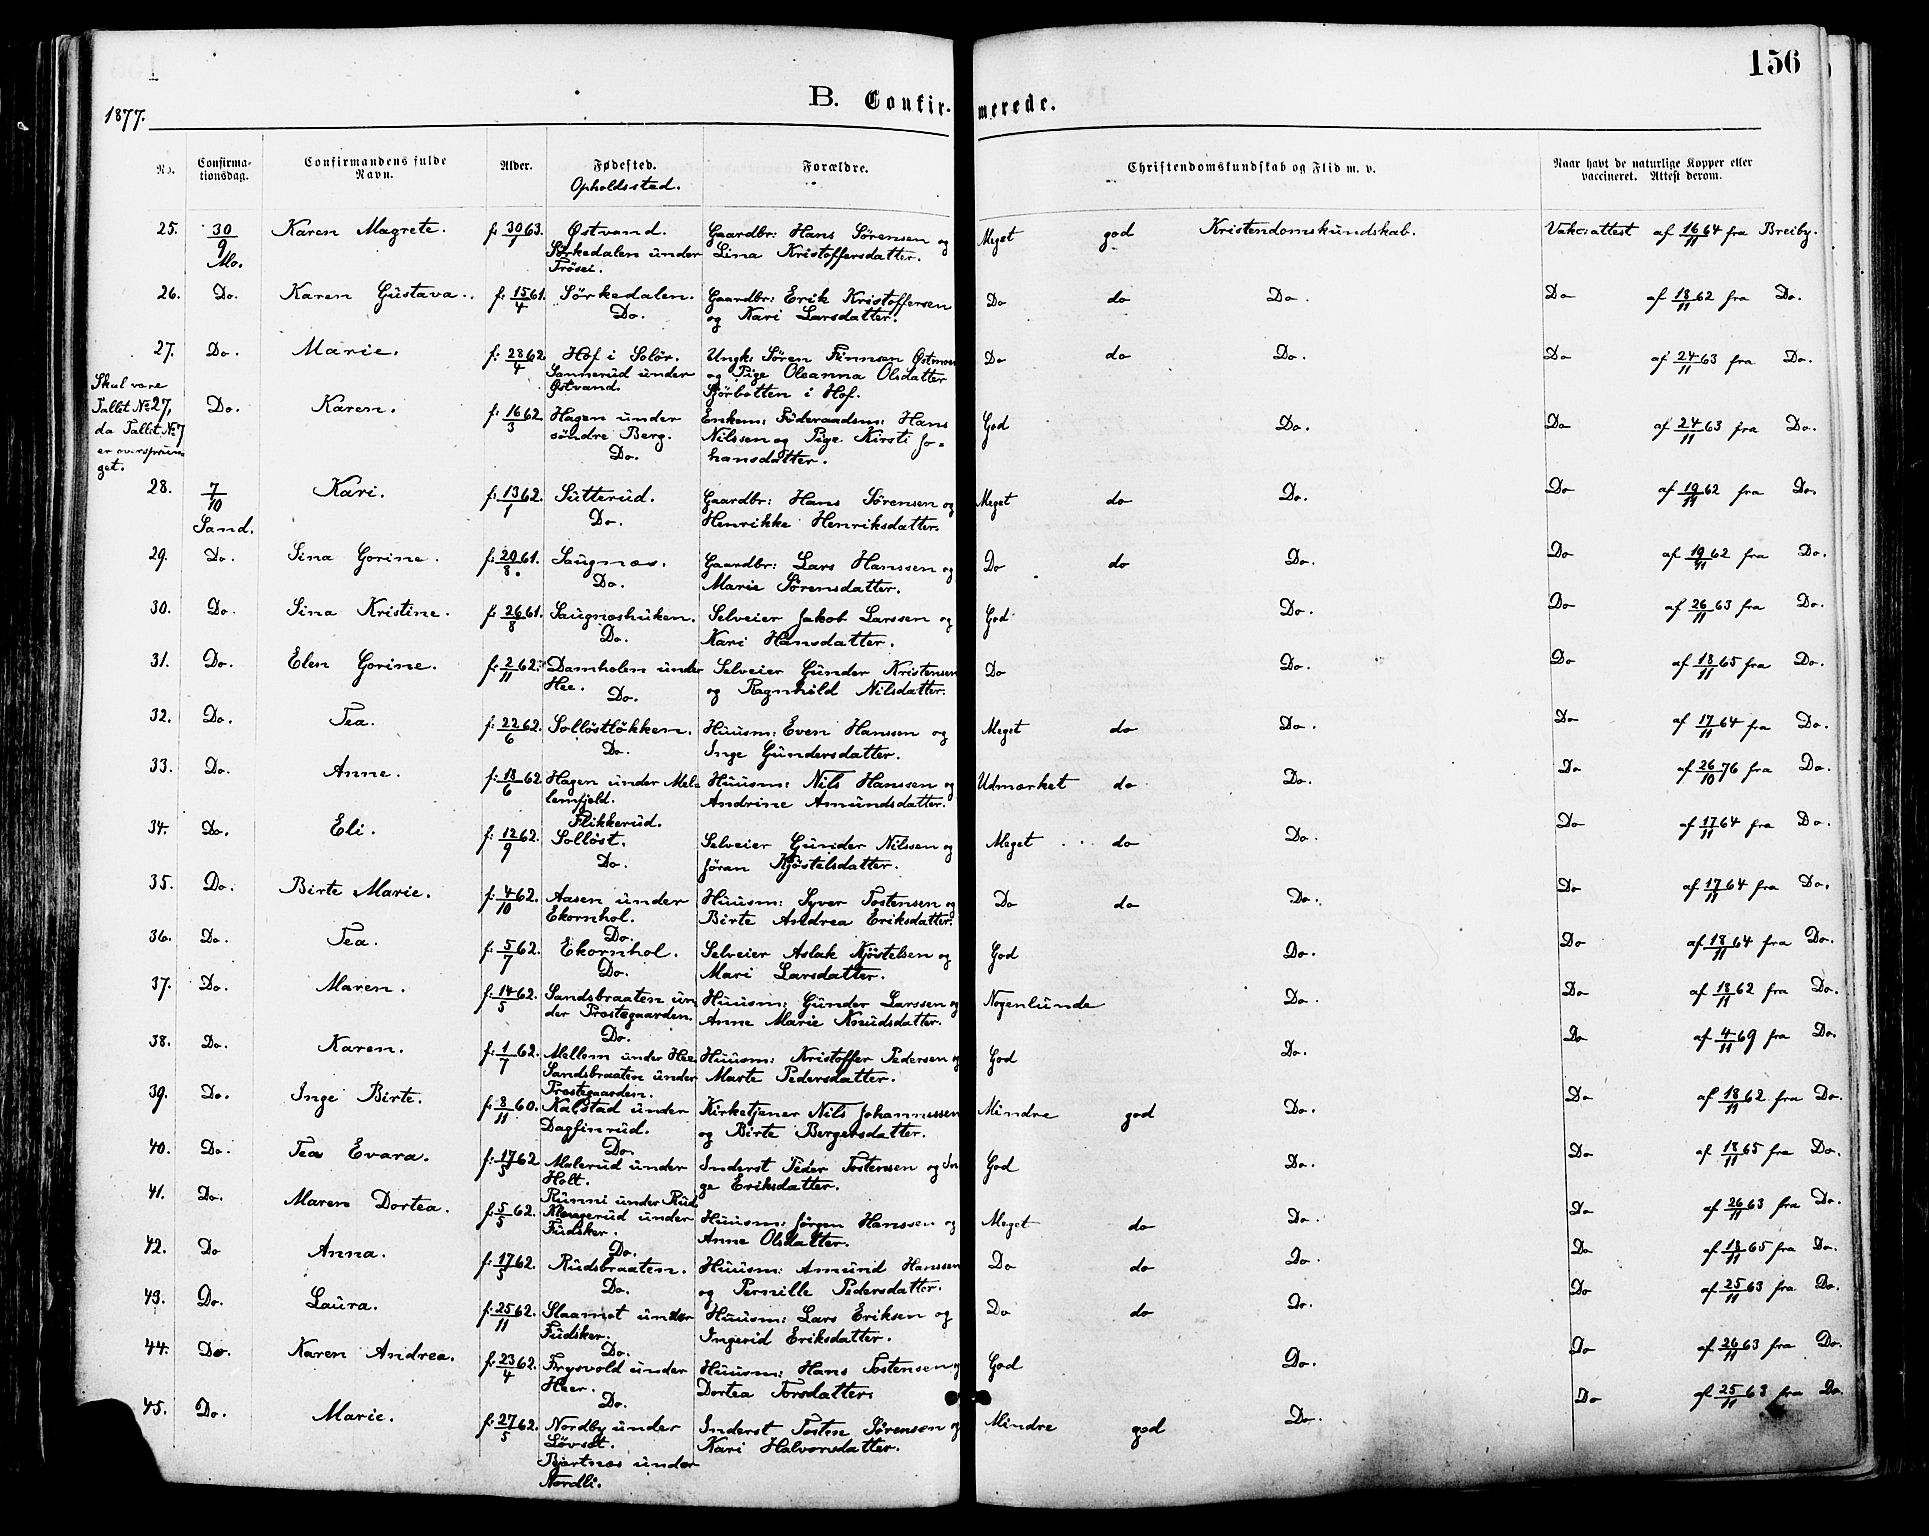 156
1877.
B. Confir- merede.
No. Confirmationsdag. Confirmandens fulde Navn. Alder. Fødested. Opholdssted. Forældre. Christendomskundskab og Flid m. v. Naar havt de naturlige Kopper eller vaccineret. Attest derom.
25. 30/9 Mo. Karen Magrete. f: 30/1 63. Østvand. Sørkedalen under Trösei. Gaardbr: Hans Sørensen og Lina Kristoffersdatter. Meget god Kristendomskundskab. Vakc: attest af 16/11 64 fra Breiby.
26. Do. Karen Gustava. f: 15/4 61. Sørkedalen. Do. Gaardbr: Erik Kristoffersen og Kari Larsdatter. Do do Do. Do af 18/11 62 fra Do.
27. Do. Marie. f: 28/4 62. Hof i Solör. Sannerud under Østvand. Ungk: Sören Finnsen og Pige Oleanna Olsdatter i Hof. Do do Do. Do af 24/11 63 fra Do.
Skul vere Tallet No 27, da Tallet No 7 er oversprunget.
Do. Karen. f: 16/3 62. Hagen under söndre Berg. Do. Enkem: Föderaadsm: Hans Nilssen og Pige Kirsti Johansdatter. God Do. Do af 24/11 63 fra Do.
28. 7/10 Sand. Kari. f: 13/1 62. Sütterud. Do. Gaardbr: Hans Sørensen og Henrikke Henriksdatter. Meget do Do. Do af 19/11 62 fra Do.
29. Do. Sina Gorine. f: 29/8 61. Saugnæs. Do. Gaardbr: Lars Hanssen og Marie Sørensdatter. Do do Do. Do af 19/11 62 fra Do.
30. Do. Sina Kristine. f: 26/8 61. Saugnæshuken. Do. Selveier Jakob Larssen og Kari Hansdatter. God Do. Do af 26/11 63 fra Do.
31. Do. Elen Gorine. f: 2/11 62. Damholen under Hee. Do. Selveier Günder Kristensen og Ragnhild Nilsdatter. Do Do. Do af 18/11 65 fra Do.
32. Do. Tea. f: 22/6 62. Solløstløkken. Do. Huusm: Even Hanssen og Inge Gündersdatter. Meget do Do. Do af 17/11 64 fra Do.
33. Do. Anne. f: 18/6 62 Hagen under Mellemfjeld. Flikkerüd. Huusm: Nils Hanssen og Andrine Amundsdatter. Udmærket do Do. Do af 26/10 76 fra Do.
34. Do. Eli. f: 12/9 62. Solløst. Do. Selveier Günder Nilssen og Jöran Kjöstelsdatter. Meget do Do. Do af 17/11 64 fra Do.
35. Do. Birte Marie. f: 4/10 62. Aasen under Ekornhol. Do. Huusm: Syver Tostensen og Birte Andrea Eriksdatter. Do do Do. Do af 17/11 64 fra Do.
36. Do. Tea. f: 5/7 62. Ekornhol. Do. Selveier Aslak Kjöstelsen og Mari Larsdatter. God Do. Do af 18/11 64 fra Do.
37. Do. Maren. f: 14/5 62. Sandsbraaten under Prestegaarden. Do. Huusm: Günder Larssen og Anne Marie Knudsdatter. Nogenlunde Do. Do af 18/11 62 fra Do.
38. Do. Karen. f: 1/7 62. Mellom under Hee. Sandsbraaten under Prestegaarden. Huusm: Kristoffer Pedersen og Marte Pedersdatter. God Do. Do af 4/11 69 fra Do.
39. Do. Inge Birte. f: 8/11 60. Kalstad under Dagfinrud. Do. Kirketjener Nils Johannessen og Birte Bergersdatter. Mindre god Do. Do af 18/11 62 fra Do.
40. Do. Tea Evara. f: 17/5 62 Malerud under Holt. Rünni under Rud Inderst Peder Tostensen og Inge Eriksdatter. God Do. Do af 18/11 65 fra Do.
41. Do. Maren Dortea. f: 5/5 62. Klengerud under Fudsker. Do. Huusm: Jörgen Hanssen og Anne Olsdatter. Meget do Do. Do af 26/11 63 fra Do.
42. Do Anna. f: 17/5 62. Rüdsbraaten. Do. Huusm: Amund Hanssen og Pernille Pedersdatter. Do do Do. Do af 18/11 65 fra Do.
43. Do. Laura. f: 25/11 62. Slaamot under Fudsker. Do. Huusm: Lars Eriksen og Ingerid Eriksdatter. Do do Do. Do af 25/11 63 fra Do.
44. Do. Karen Andrea. f: 23/4 62. Frysvold under Heer. Do. Huusm: Hans Tostensen og Dortea Torsdatter. God Do. Do af 26/11 63 fra Do.
45. Do. Marie. f: 27/5 62. Nordby under Lövset. Bjertnæs under Nordli. Inderst Tosten Sørensen og Kari Halvorsdatter. Mindre god Do. Do af 25/11 63 fra Do.